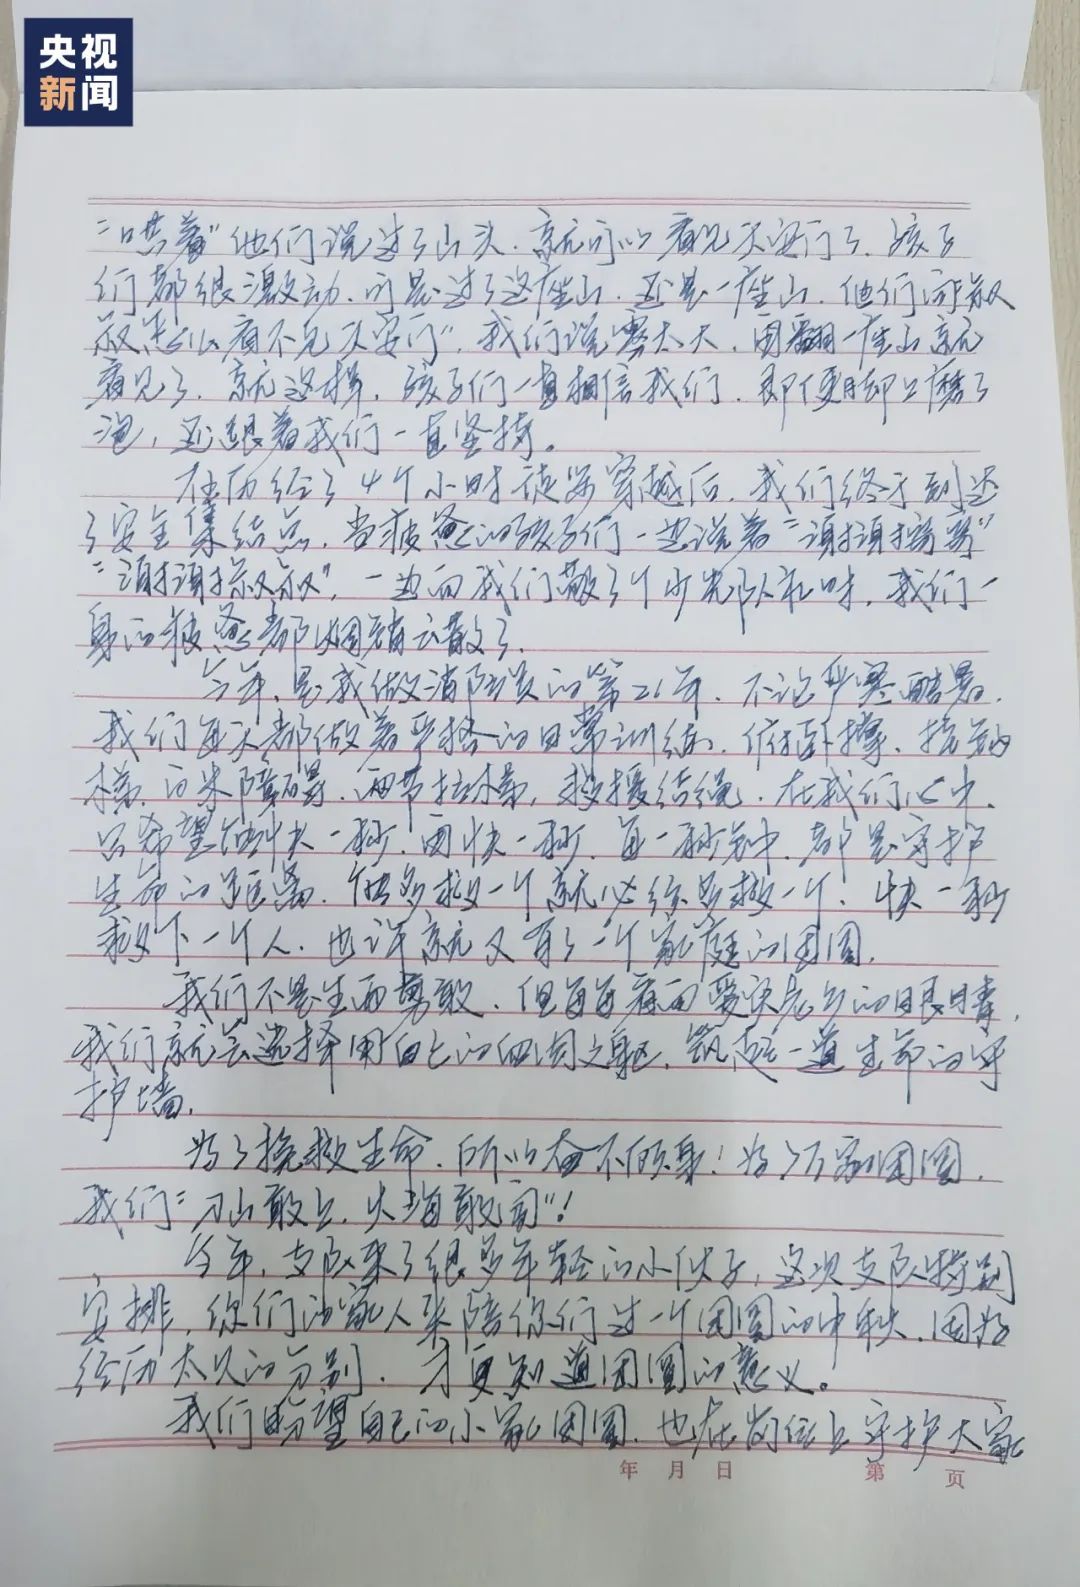 央视
新闻
“哄着”他们说过了山头，就可以看见天安门了，孩子
们都很激动，可是过了这座山，还是一座山，他们问“叔
叔怎么看不见天安门”，我们说雾太大，再翻一座山就
看见了，就这样，孩子们一直相信我们，即使脚上磨了
泡，还跟着我们一直坚持。
在历经了4个小时徒步穿越后，我们终于到达
了安全集结点，当疲惫的孩子们一边说着“谢谢
“谢谢叔叔”，一边向我们敬了个少先队礼时，我们一
身的疲惫都烟消云散了。
今年，是我做消防员的第21年，不论严寒酷暑，
我们每天都做着严格的日常训练，俯卧撑、挂钩
梯、百米障碍、两节拉梯，救援结绳，在我们心中，
只希望能快一秒，再快一秒，每一秒钟，都是守护
生命的距离，能多救一个就必须多救一个！快一秒
救下一个人，也许就又有了一个家庭的团圆，
我们不是生而勇敢，但每每看到受灾老乡的眼睛，
我们就会选择用自己的血肉之躯，筑起一道生命的守
护墙，
为了挽救生命，所以奋不顾身！为了万家团圆，
我们“刀山敢上，火海敢闯”！
今年，支队来了很多年轻的小伙子，这次支队特别
安排，你们的家人来陪你们过一个团圆的中秋，因为
经历太久的分别，才更知道团圆的意义。
我们盼望自己的小家团圆，也在岗位上守护大家
年 月 日 第 页